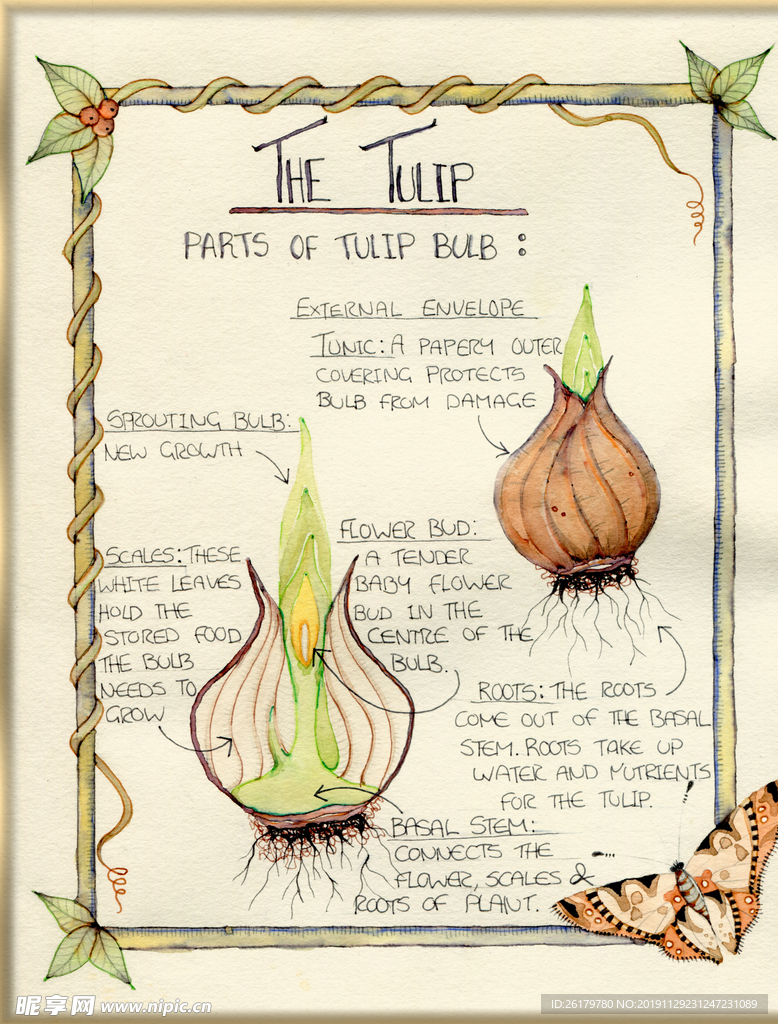 THE TULIP
PARTS OF TULIP BULB :
EXTERNAL ENVELOPE
TUNIC: A PAPERY OUTER
COVERING PROTECTS
BULB FROM DAMAGE
SPROUTING BULB:
NEW GROWTH
FLOWER BUD:
A TENDER
BABY FLOWER
BUD IN THE
CENTRE OF THE
BULB.
SCALES: THESE
WHITE LEAVES
HOLD THE
STORED FOOD
THE BULB
NEEDS TO
GROW
ROOTS: THE ROOTS
COME OUT OF THE BASAL
STEM. ROOTS TAKE UP
WATER AND NUTRIENTS
FOR THE TULIP.
BASAL STEM:
CONNECTS THE
FLOWER, SCALES &
ROOTS OF PLANT.
昵享网 www.nipic.cn
ID:26179780 NO:20191129231247231089